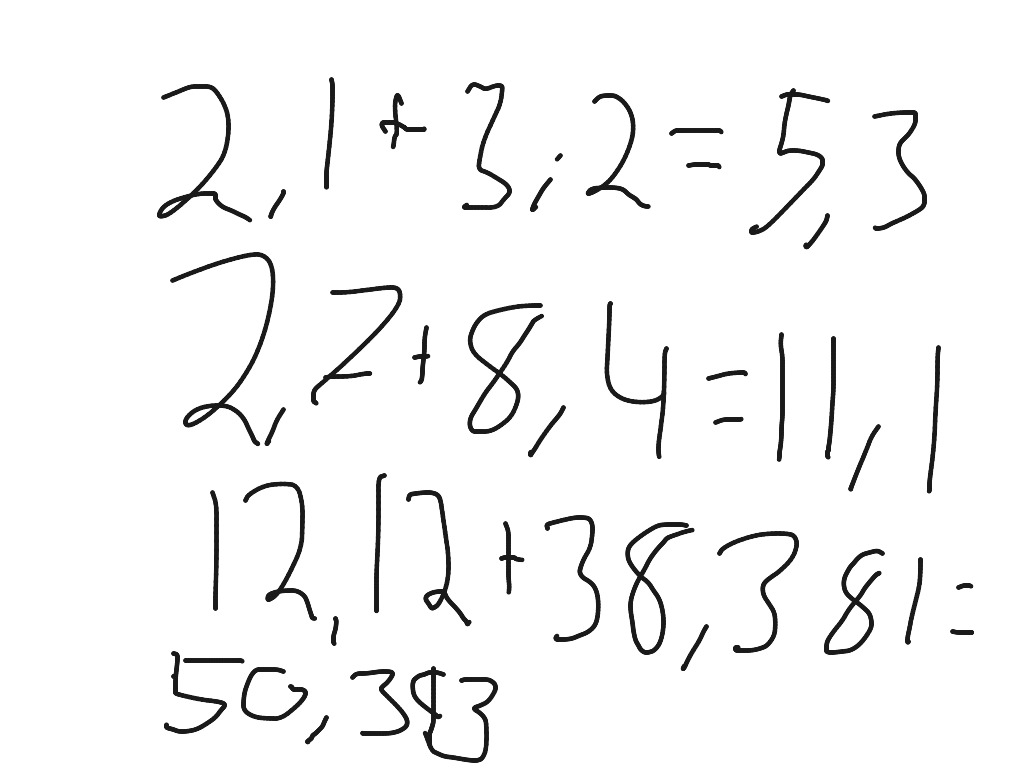 2,1 + 3,2 = 5,3
2,7 + 8,4 = 11,1
12,12 + 38,381 =
50,393